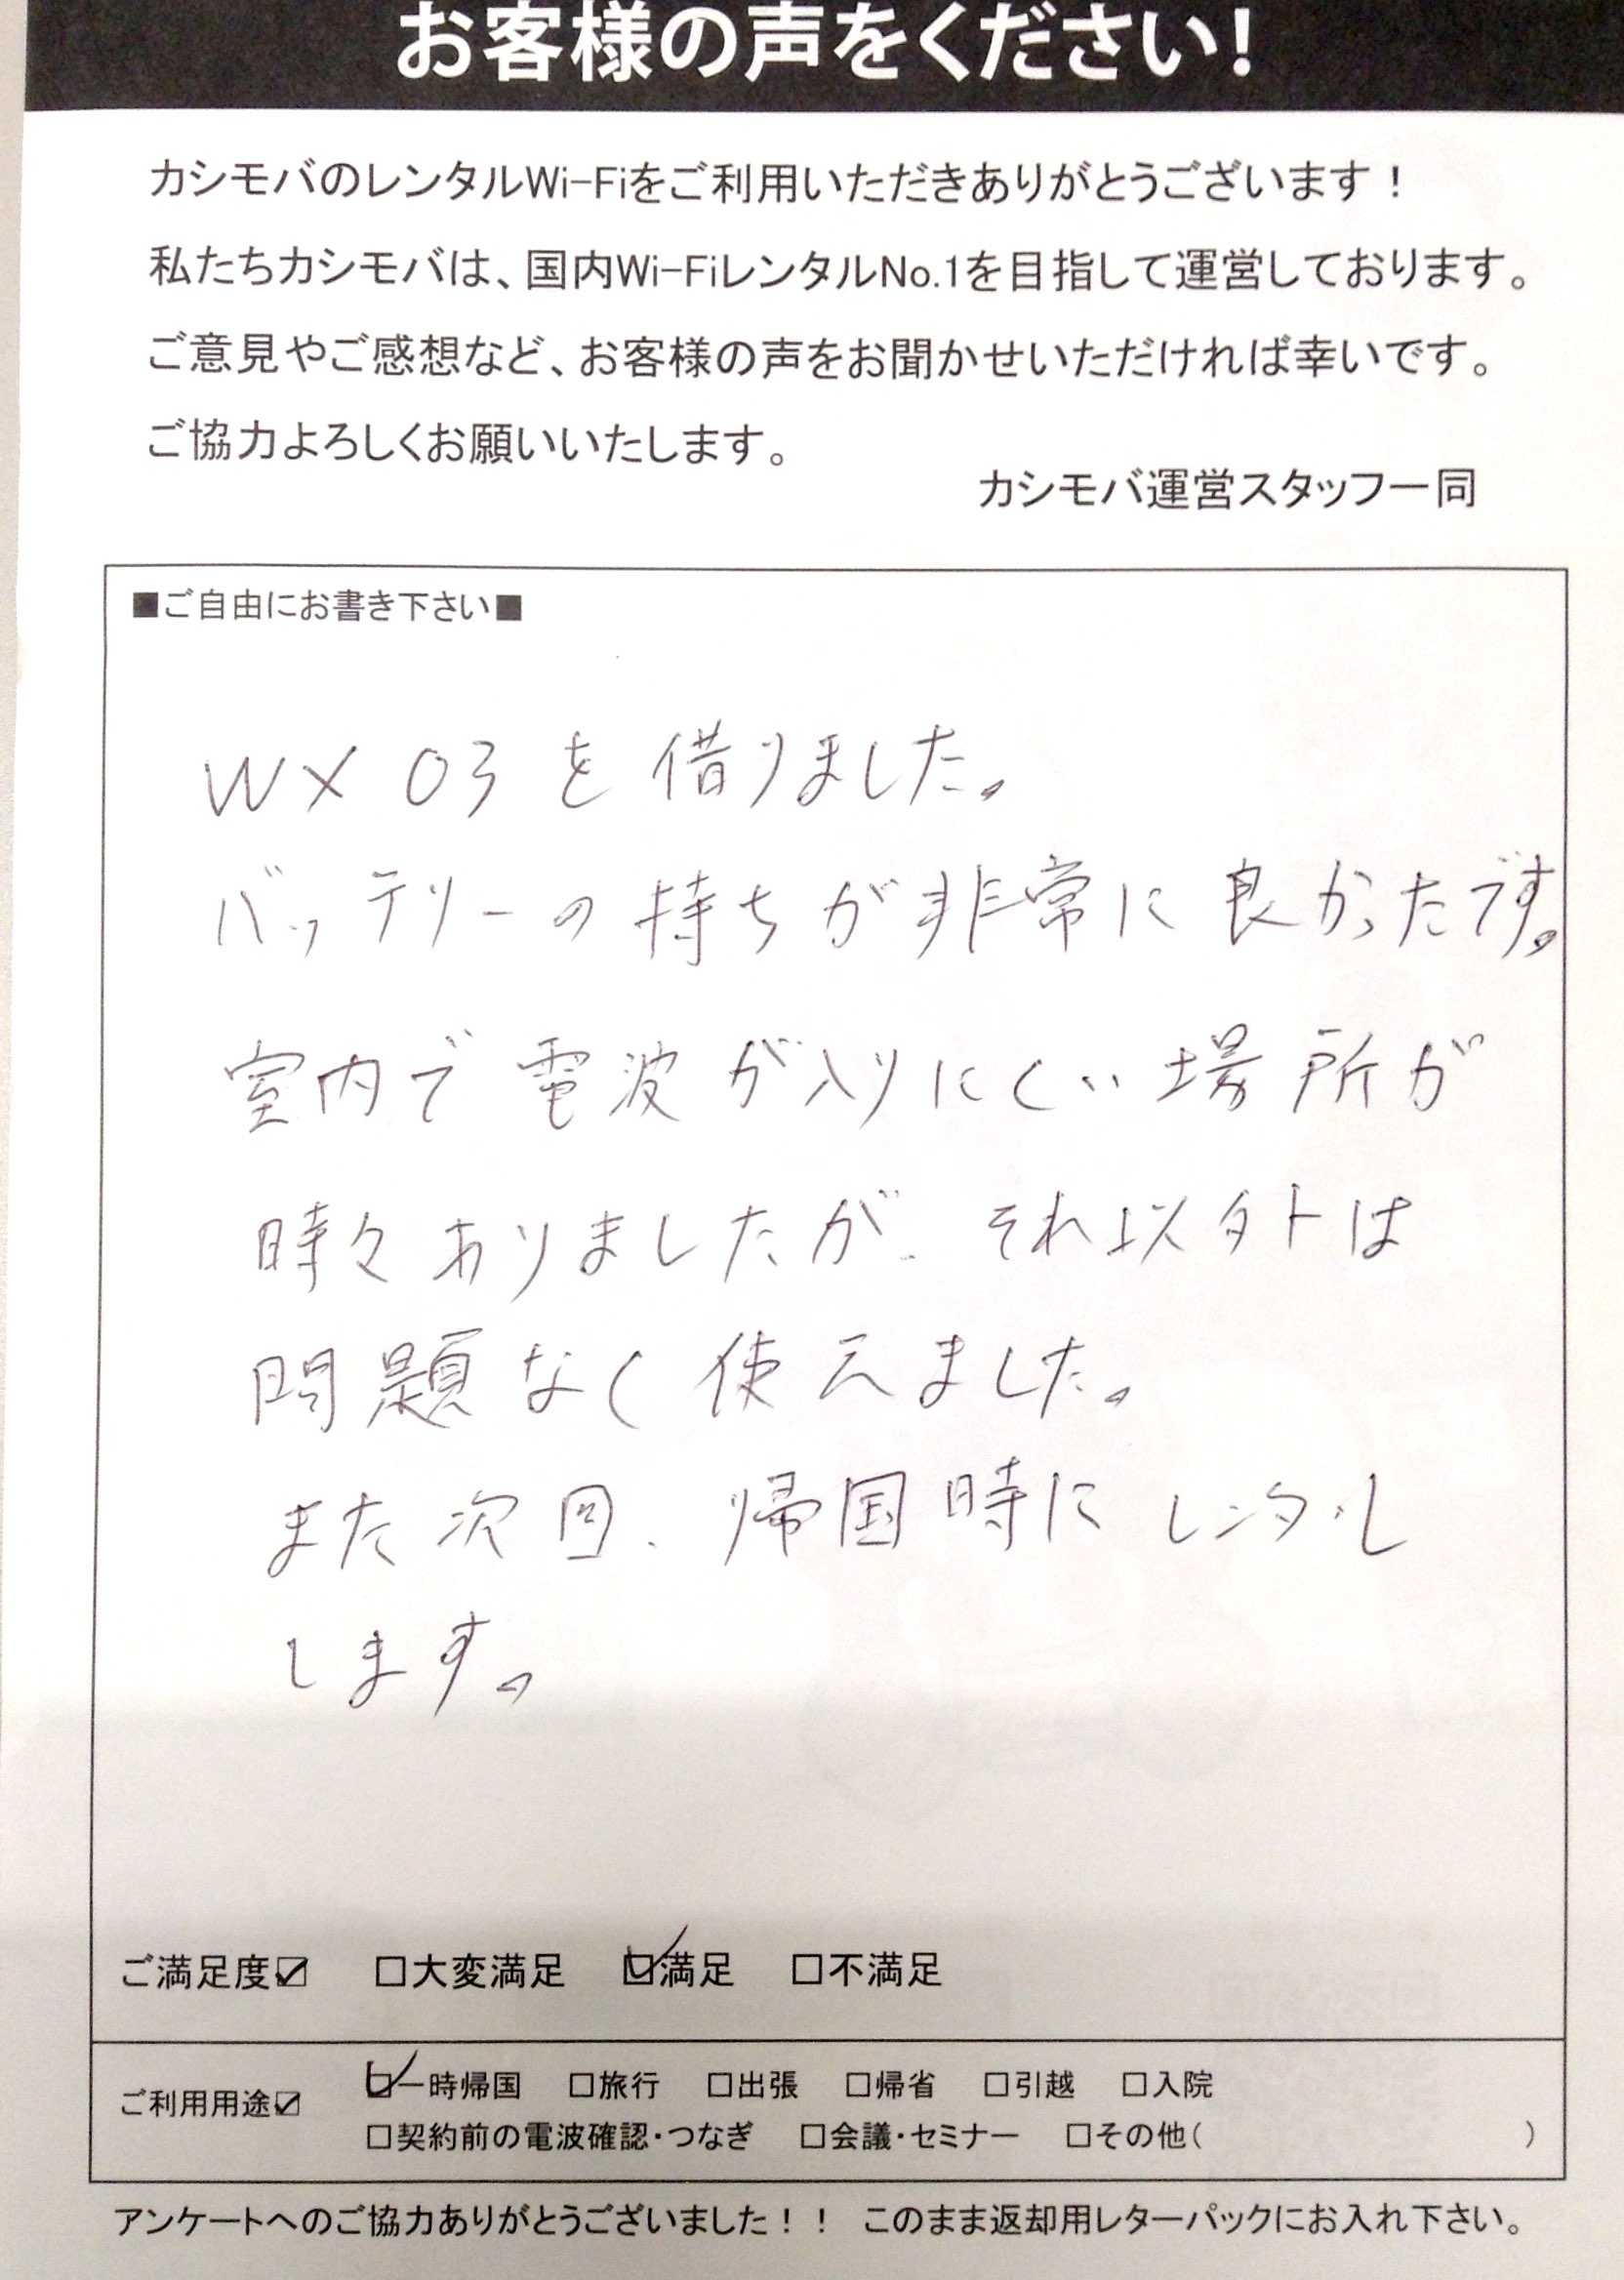 お客様の声をください!
カシモバのレンタルWi-Fiをご利用いただきありがとうございます！
私たちカシモバは、国内Wi-FiレンタルNo.1を目指して運営しております。
ご意見やご感想など、お客様の声をお聞かせいただければ幸いです。
ご協力よろしくお願いいたします。
カシモバ運営スタッフ一同
■ご自由にお書き下さい■
WX03を借りました。
バッテリーの持ちが非常に良かったです。
室内で電波が入りにくい場所が
時々ありましたが、それ以外は
問題なく使えました。
また次回、帰国時にレンタル
します。
ご満足度☑ □大変満足 ☑満足 □不満足
ご利用用途☑ ☑一時帰国 □旅行 □出張 □帰省 □引越 □入院
□契約前の電波確認・つなぎ □会議・セミナー □その他( )
アンケートへのご協力ありがとうございました！！ このまま返却用レターパックにお入れ下さい。